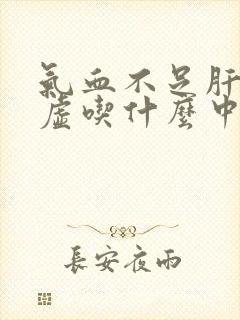 氣血不足肝
虛喫什麼中
長安夜雨